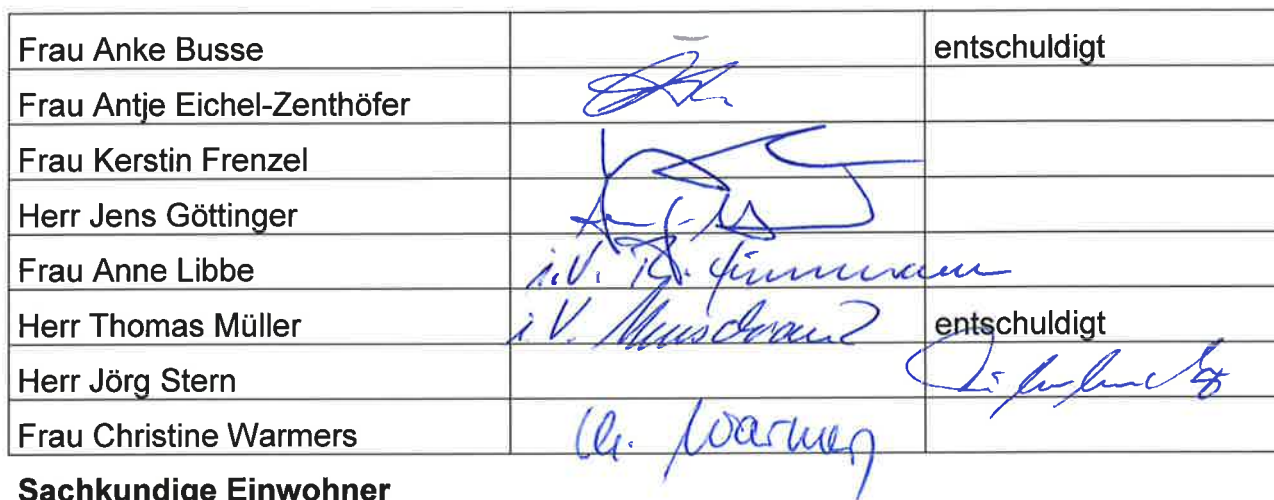 Frau Anke Busse entschuldigt
Frau Antje Eichel-Zenthöfer
Frau Kerstin Frenzel
Herr Jens Göttinger
Frau Anne Libbe i.V.
Herr Thomas Müller i.V. entschuldigt
Herr Jörg Stern
Frau Christine Warmers Ch. Warmers
Sachkundige Einwohner